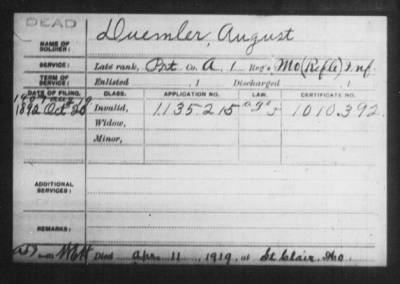 DEAD
NAME OF SOLDIER: Duemler, August
SERVICE: Late rank, Pvt Co. A, 1 Reg't Mo (Res Cps) Inf.
TERM OF SERVICE: Enlisted , 1 Discharged , 1
DATE OF FILING. CLASS. APPLICATION NO. LAW. CERTIFICATE NO.
1892 Oct 26 Invalid, 1135215 1010.392
Widow,
Minor,
ADDITIONAL SERVICES:
REMARKS:
Died Apr. 11, 1919, at St Clair, Mo.